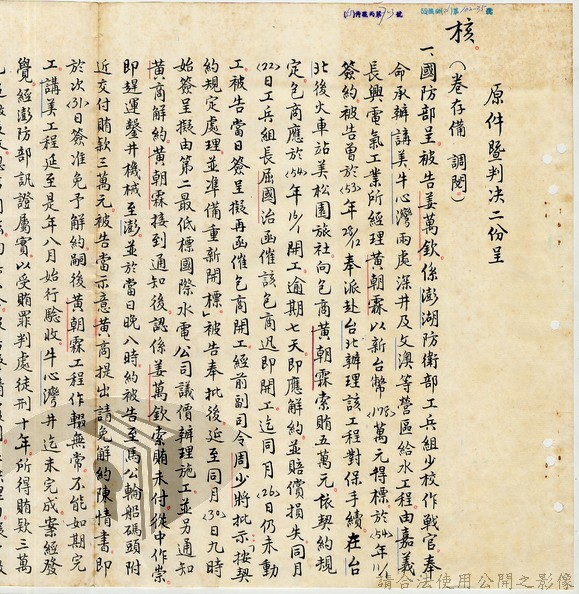 原件暨判决二份呈
核。(卷存備 調閱)。
一、國防部呈被告姜萬欽係澎湖防衛部工兵組少校作戰官奉
命承辦講美牛心灣兩處深井及文澳等營區給水工程由嘉義
長興電氣工業所經理黃朝霖以新台幣(178)萬元得標於(54)年
簽約被告曾於(53)年 奉派赴台北辦理該工程對保手續在台
北後火車站美松園旅社向包商黃朝霖索賄五萬元依契約規
定包商應於(54)年 開工逾期七天即應解約並賠償損失同月
(22)日工兵組長屈國治函催該包商迅即開工迄同月(26)日仍未動
工被告當日簽呈擬再函催包商開工經前副司令周少將批示按契
約規定處理並準備重新開標」被告奉批後延至同月(30)日九時
始簽呈擬由第二最低標國際水電公司議價辦理施工並另通知
黃商解約黃朝霖接到通知後認係姜萬欽索賄未付從中作祟
即趕運鑿井機械至澎並於當日晚八時約被告至馬公輪船碼頭附
近交付賄款三萬元被告當示意黃商提出請免解約陳情書即
於次(31)日簽准免予解約嗣後黃朝霖工程作輟無常不能如期完
工講美工程延至是年八月始行驗收牛心灣井迄未完成案經發
覺經澎防部訊證屬實以受賄罪判處徒刑十年所得賄款三萬
請合法使用公開之影像